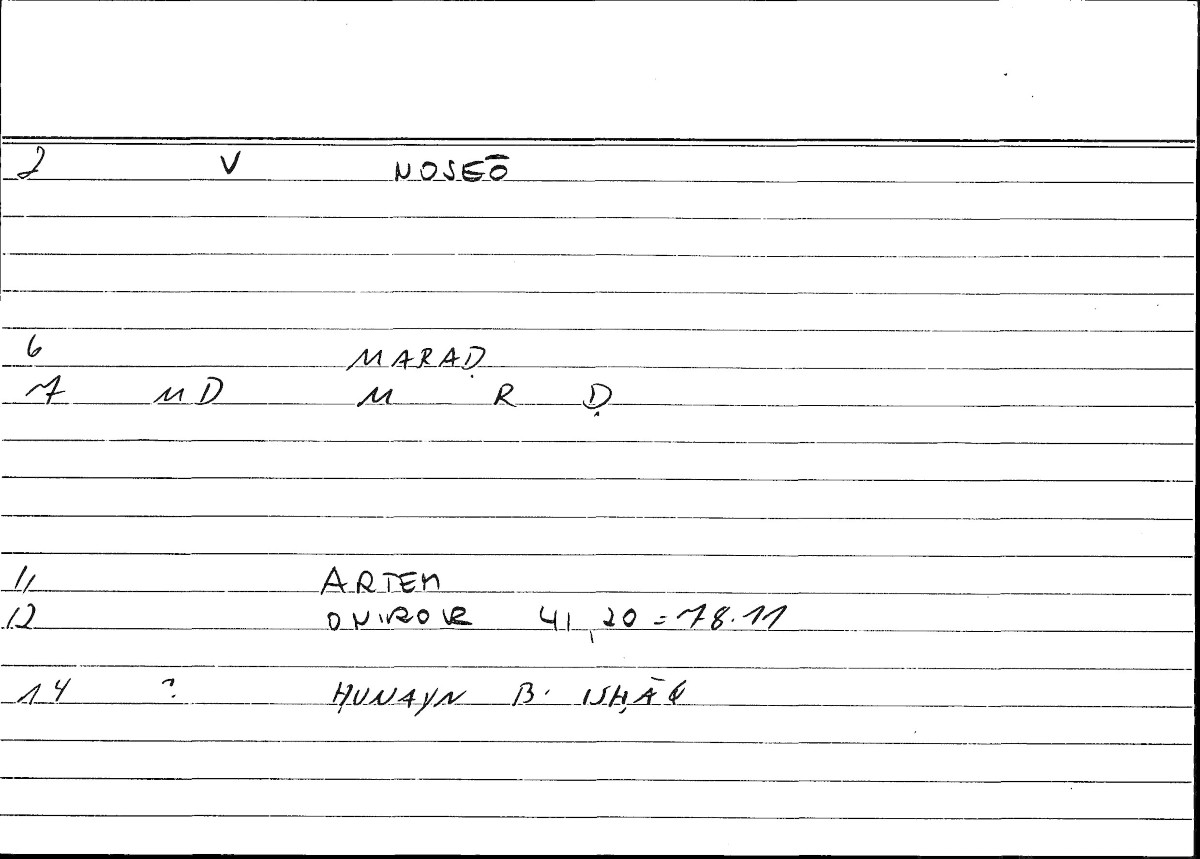 2 V NOSEŌ
6 MARAḌ
7 MD M R Ḍ
11 ARTEM
12 ONIROK 41,20 = 78.11
14 ? ḤUNAYN B. ISḤĀQ